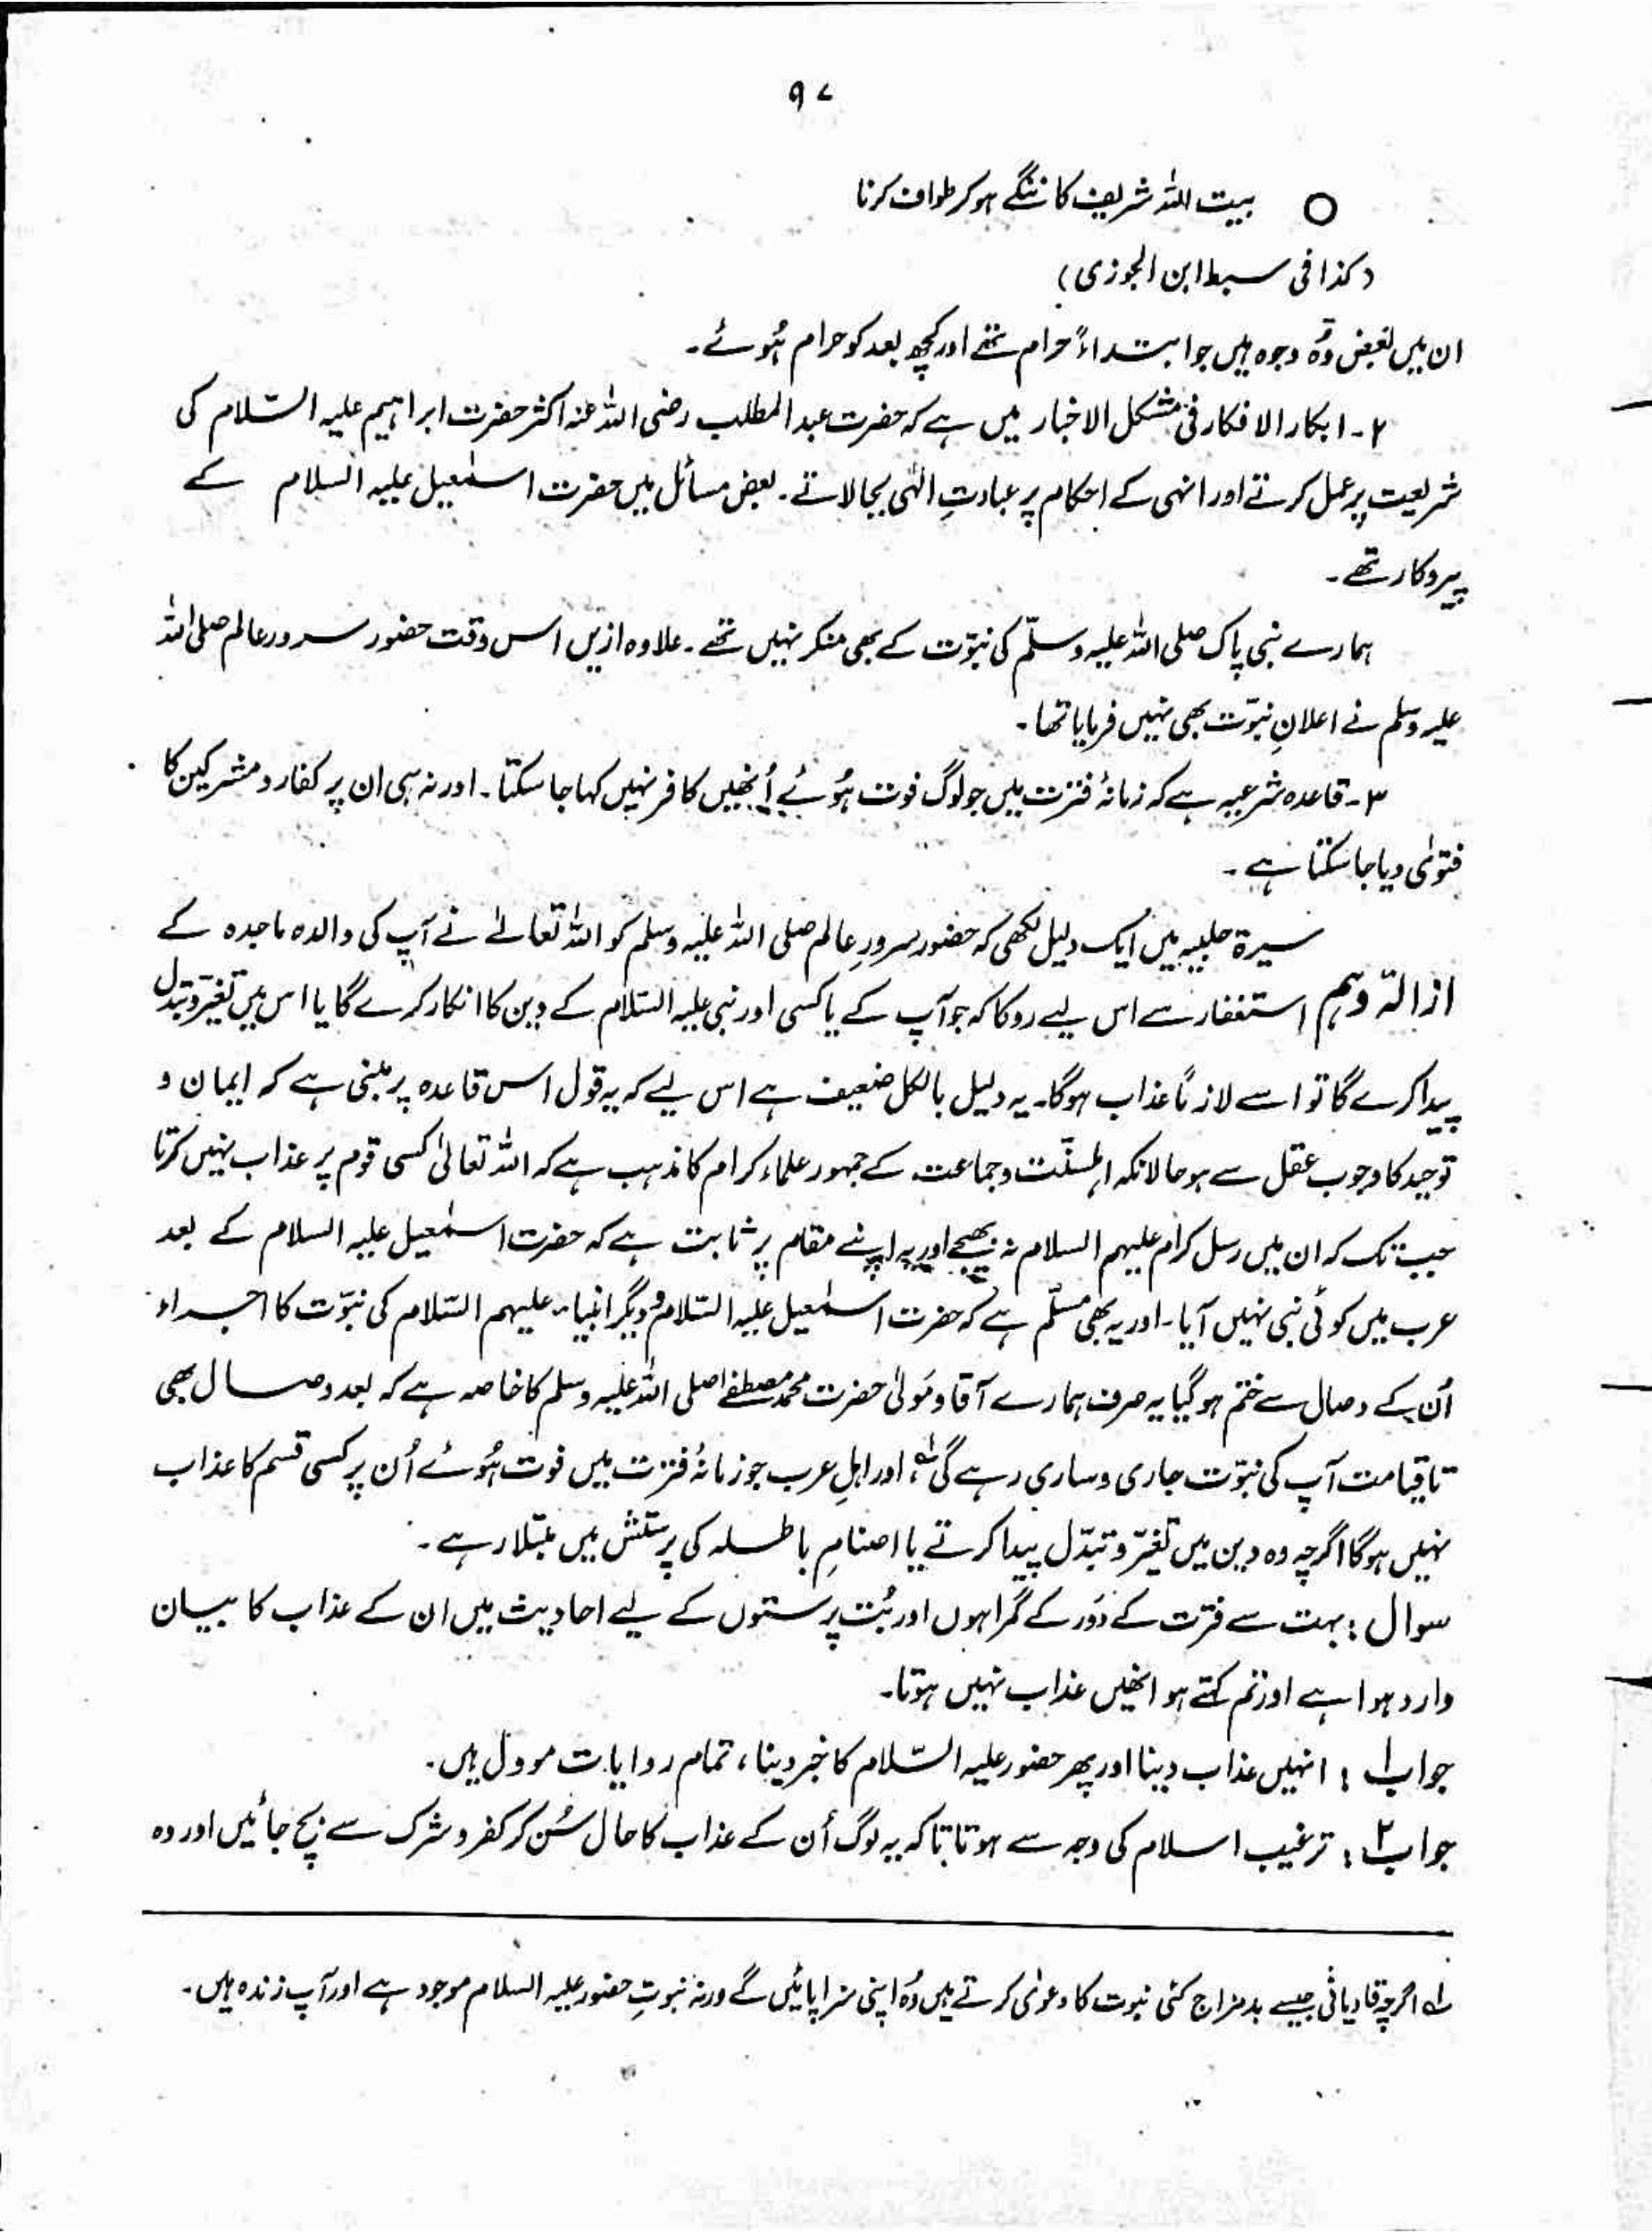 ۹۷
○ بیت اللہ شریف کا ننگے ہو کر طواف کرنا
(کذا فی سبط ابن الجوزی)
ان میں بعض وُہ وجوہ ہیں جو ابتداءً حرام تھے اور کچھ بعد کو حرام ہُوئے۔
۲۔ ابکار الافکار فی مشکل الاخبار میں ہے کہ حضرت عبد المطلب رضی اللہ عنہ اکثر حضرت ابراہیم علیہ السّلام کی
شریعت پر عمل کرتے اور انہی کے احکام پر عبادتِ الٰہی بجا لاتے۔ بعض مسائل میں حضرت اسمٰعیل علیہ السلام کے
پیروکار تھے۔
ہمارے نبی پاک صلی اللہ علیہ وسلّم کی نبوّت کے بھی منکر نہیں تھے۔ علاوہ ازیں اس وقت حضور سرور عالم صلی اللہ
علیہ وسلم نے اعلانِ نبوّت بھی نہیں فرمایا تھا۔
۳۔ قاعدہ شرعیہ ہے کہ زمانۂ فترت میں جو لوگ فوت ہُوئے اُنھیں کافر نہیں کہا جا سکتا۔ اور نہ ہی ان پر کفار و مشرکین کا
فتوٰی دیا جا سکتا ہے۔
سیرۃ حلبیہ میں ایک دلیل لکھی کہ حضور سرورِ عالم صلی اللہ علیہ وسلم کو اللہ تعالےٰ نے آپ کی والدہ ماجدہ کے
ازالۃ وہم استغفار سے اس لیے روکا کہ جو آپ کے یا کسی اور نبی علیہ السّلام کے دین کا انکار کرے گا یا اس میں تغیّر و تبدل
پیدا کرے گا تو اسے لازماً عذاب ہوگا۔ یہ دلیل بالکل ضعیف ہے اس لیے کہ یہ قول اس قاعدہ پر مبنی ہے کہ ایمان و
توحید کا وجوب عقل سے ہو حالانکہ اہلسنّت و جماعت کے جمہور علماء کرام کا مذہب ہے کہ اللہ تعالیٰ کسی قوم پر عذاب نہیں کرتا
جب تک کہ ان میں رسل کرام علیہم السلام نہ بھیجے اور یہ اپنے مقام پر ثابت ہے کہ حضرت اسمٰعیل علیہ السلام کے بعد
عرب میں کوئی نبی نہیں آیا۔ اور یہ بھی مسلّم ہے کہ حضرت اسمٰعیل علیہ السّلام و دیگر انبیاء علیہم السّلام کی نبوّت کا اجراء
اُن کے وصال سے ختم ہو گیا یہ صرف ہمارے آقا و مَولٰی حضرت محمد مصطفےٰ صلی اللہ علیہ وسلم کا خاصہ ہے کہ بعد وصال بھی
تا قیامت آپ کی نبوّت جاری و ساری رہے گی لہ، اور اہلِ عرب جو زمانۂ فترت میں فوت ہُوئے اُن پر کسی قسم کا عذاب
نہیں ہوگا اگرچہ وہ دین میں تغیّر و تبدّل پیدا کرتے یا اصنامِ باطلہ کی پرستش میں مبتلا رہے۔
سوال : بہت سے فترت کے دَور کے گمراہوں اور بُت پرستوں کے لیے احادیث میں ان کے عذاب کا بیان
وارد ہوا ہے اور تم کہتے ہو انھیں عذاب نہیں ہوتا۔
جواب ۱ : انہیں عذاب دینا اور پھر حضور علیہ السّلام کا خبر دینا، تمام روایات مودل ہیں۔
جواب ۲ : ترغیب اسلام کی وجہ سے ہوتا تاکہ یہ لوگ اُن کے عذاب کا حال سُن کر کفر و شرک سے بچ جائیں اور وہ
لہ اگرچہ قادیانی جیسے بد مزاج کئی نبوت کا دعوٰی کرتے ہیں وُہ اپنی سزا پائیں گے ورنہ نبوتِ حضور علیہ السلام موجود ہے اور آپ زندہ ہیں۔